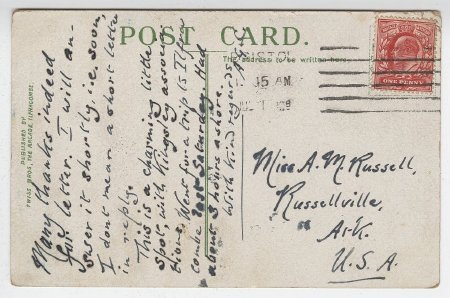 POST CARD.
The address to be written here.
PUBLISHED BY
TWISS BROS, THE ARCADE, ILFRACOMBE.
Many thanks indeed
for letter. I will an-
swer it shortly, i.e. soon,
I don't mean a short letter
in reply.
This is a charming little
spot, with Kingsley associa
tions. Went for a trip to Ilfra
combe last Saturday. Had
about 3 hours ashore.
With kind regards
BRISTOL
15 AM
ONE PENNY
Miss A. M. Russell,
Russellville,
Ark.
U.S.A.